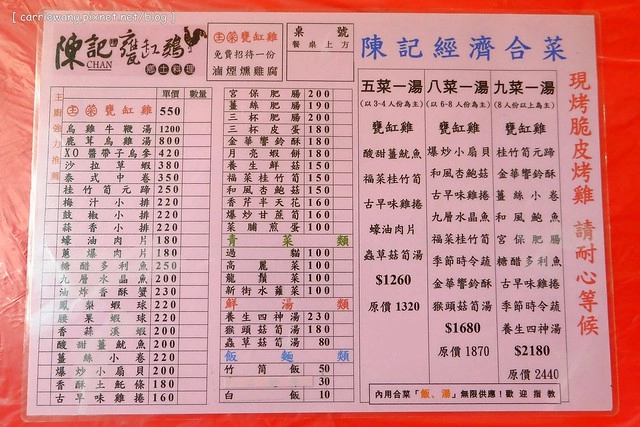 [ carriewang.pixnet.net/blog ]
陳記甕缸雞
CHAN
鄉土料理
主榮甕缸雞
免費招待一份
滷煙燻雞腐
桌號
餐桌上方
主廚強力推薦
單價 數量
主榮甕缸雞 550
烏雞牛鞭湯 1200
鹿茸烏雞湯 800
XO醬帶子烏參 420
沙拉草蝦 380
泰式中卷 350
桂竹筍元蹄 250
梅汁小排 220
鼓椒小排 220
蒜香小排 220
蠔油肉片 180
蔥爆肉片 180
糖醋多利魚 250
九層水晶魚 200
油炸香酥蟹 230
鳳梨蝦球 220
腰果蝦球 220
香蒜溪蝦 200
酸甜薑魷魚 200
薑絲小卷 220
爆炒小扇貝 200
香酥土魠條 180
古早味雞捲 160
宮保肥腸 200
薑絲肥腸 190
三杯肥腸 200
三杯皮蛋 180
金華響鈴酥 180
月亮蝦餅 180
養生鮮菇 150
福菜桂竹筍 150
和風杏鮑菇 150
香芹半天花 160
爆炒甘蔗筍 160
菜脯煎蛋 100
青菜類
過貓 100
高麗菜 100
龍鬚菜 100
新街水蓮菜 100
鮮湯類
養生四神湯 230
猴頭菇筍湯 180
蟲草菇筍湯 80
飯麵類
竹筒飯 50
30
白飯 10
陳記經濟合菜
五菜一湯
(以3-4人份為主)
甕缸雞
酸甜薑魷魚
福菜桂竹筍
古早味雞捲
蠔油肉片
蟲草菇筍湯
$1260
原價 1320
八菜一湯
(以6-8人份為主)
甕缸雞
爆炒小扇貝
和風杏菇
古早味雞捲
九層水晶魚
福菜桂竹筍
季節時令蔬
金華響鈴酥
猴頭菇筍湯
$1680
原價 1870
九菜一湯
(8人份以上為主)
甕缸雞
桂竹筍元蹄
金華響鈴酥
薑絲小卷
和風鮑魚
宮保肥腸
糖醋多利魚
古早味雞捲
季節時令蔬
養生四神湯
$2180
原價 2440
內用合菜「飯、湯」無限供應！歡迎指教
現烤脆皮烤雞 請耐心等候